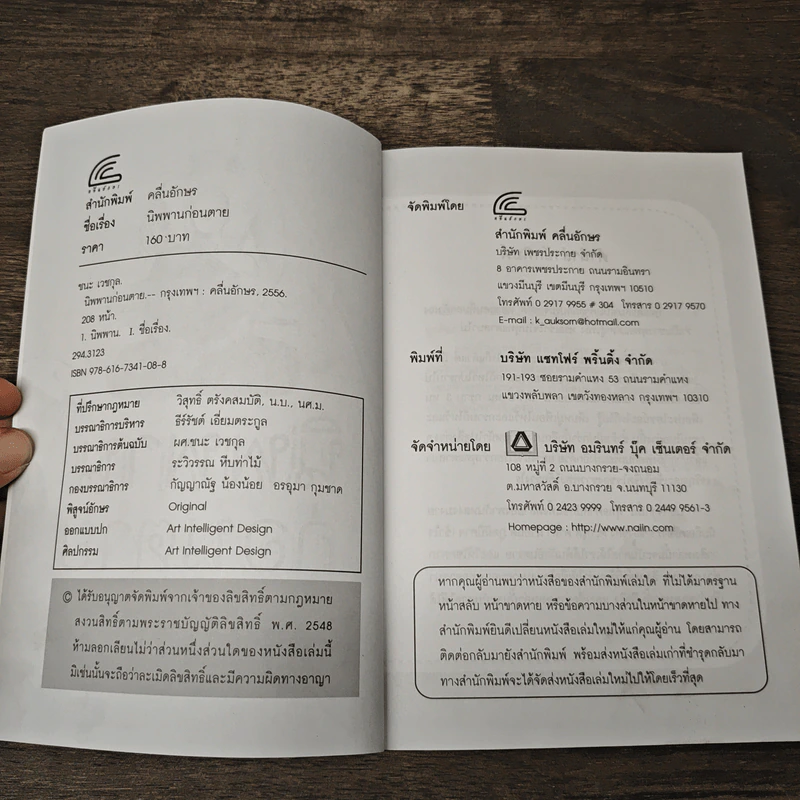 คลื่นอักษร
สำนักพิมพ์ คลื่นอักษร
ชื่อเรื่อง นิพพานก่อนตาย
ราคา 160 บาท
ชนะ เวชกุล.
นิพพานก่อนตาย.-- กรุงเทพฯ : คลื่นอักษร, 2556.
208 หน้า.
1. นิพพาน. I. ชื่อเรื่อง.
294.3123
ISBN 978-616-7341-08-8
ที่ปรึกษากฎหมาย วิสุทธิ์ ตรังคสมบัติ, น.บ., นศ.ม.
บรรณาธิการบริหาร ธีร์รัชต์ เอี่ยมตระกูล
บรรณาธิการต้นฉบับ ผศ.ชนะ เวชกุล
บรรณาธิการ ระวิวรรณ หีบท่าไม้
กองบรรณาธิการ กัญญาณัฐ น้องน้อย อรอุมา กุมชาด
พิสูจน์อักษร Original
ออกแบบปก Art Intelligent Design
ศิลปกรรม Art Intelligent Design
© ได้รับอนุญาตจัดพิมพ์จากเจ้าของลิขสิทธิ์ตามกฎหมาย
สงวนสิทธิ์ตามพระราชบัญญัติลิขสิทธิ์ พ.ศ. 2548
ห้ามลอกเลียนไม่ว่าส่วนหนึ่งส่วนใดของหนังสือเล่มนี้
มิเช่นนั้นจะถือว่าละเมิดลิขสิทธิ์และมีความผิดทางอาญา
จัดพิมพ์โดย
คลื่นอักษร
สำนักพิมพ์ คลื่นอักษร
บริษัท เพชรประกาย จำกัด
8 อาคารเพชรประกาย ถนนรามอินทรา
แขวงมีนบุรี เขตมีนบุรี กรุงเทพฯ 10510
โทรศัพท์ 0 2917 9955 # 304 โทรสาร 0 2917 9570
E-mail : k_auksorn@hotmail.com
พิมพ์ที่ บริษัท แซทโฟร์ พริ้นติ้ง จำกัด
191-193 ซอยรามคำแหง 53 ถนนรามคำแหง
แขวงพลับพลา เขตวังทองหลาง กรุงเทพฯ 10310
จัดจำหน่ายโดย บริษัท อมรินทร์ บุ๊ค เซ็นเตอร์ จำกัด
108 หมู่ที่ 2 ถนนบางกรวย-จงถนอม
ต.มหาสวัสดิ์ อ.บางกรวย จ.นนทบุรี 11130
โทรศัพท์ 0 2423 9999 โทรสาร 0 2449 9561-3
Homepage : http://www.naiin.com
หากคุณผู้อ่านพบว่าหนังสือของสำนักพิมพ์เล่มใด ที่ไม่ได้มาตรฐาน
หน้าสลับ หน้าขาดหาย หรือข้อความบางส่วนในหน้าขาดหายไป ทาง
สำนักพิมพ์ยินดีเปลี่ยนหนังสือเล่มใหม่ให้แก่คุณผู้อ่าน โดยสามารถ
ติดต่อกลับมายังสำนักพิมพ์ พร้อมส่งหนังสือเล่มเก่าที่ชำรุดกลับมา
ทางสำนักพิมพ์จะได้จัดส่งหนังสือเล่มใหม่ไปให้โดยเร็วที่สุด